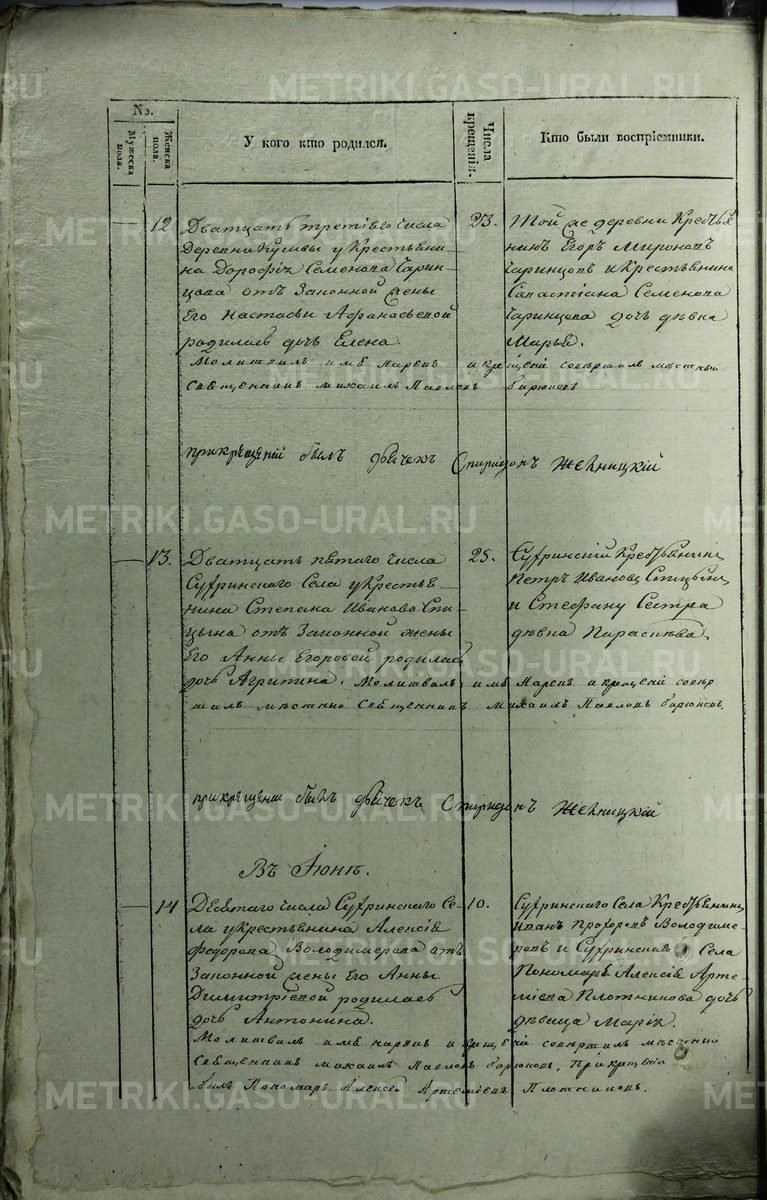 METRIKI.GASO-URAL.RU
No.
Мужеска пола.
Женска пола.
У кого кто родился.
Числа крещенія.
Кто были воспріемники.
12
Дватцать третіяго числа
Деревни у Крестьяни-
на Дорофѣя Семенова Чарин-
цова отъ Законной жены
Его Настасьи Афанасьевой
родилась дочь Елена.
23.
Той же деревни Крестья
нинъ Егоръ Мироновъ
Чаринцовъ и Крестьянина
Савастіана Семенова
Чаринцова дочь дѣвка
Марья.
Молитвилъ имя нарекъ и крещеніе совершилъ мѣстный
Священникъ Михаилъ Павловъ Бирюковъ
прикрещеніи былъ дьячекъ Спиридонъ
13.
Дватцать пятаго числа
Суфринскаго Села у Крестья-
нина Степана Иванова Спи-
цына отъ Законной жены
Его Анны Егоровой родилась
дочь Агрипина.
25.
Суфринскій Крестьянинъ
Петръ Ивановъ Спицынъ
и Стефану Сестра
дѣвка Парасковья.
Молитвилъ имя Нарекъ и крещеніе совер
шилъ мѣстный Священникъ Михаилъ Павловъ Бирюковъ.
прикрещеніи былъ дьячекъ Спиридонъ
Въ Іюнѣ.
14
Десятаго числа Суфринскаго Се-
ла у Крестьянина Алексія
Федорова Володимерова отъ
Законной жены Его Анны
Димитріевой родилась
дочь Антонина.
10.
Суфринскаго Села Крестьянинъ
Иванъ Прохоровъ Володиме-
ровъ и Суфринскаго Села
Пономаря Алексія Арте-
міева Плотникова дочь
дѣвица Марія.
Молитвилъ имя нарекъ и крещеніе совершилъ мѣстный
Священникъ Михаилъ Павловъ Бирюковъ. При крещеніи
былъ Пономарь Алексій Артеміевъ Плотниковъ.